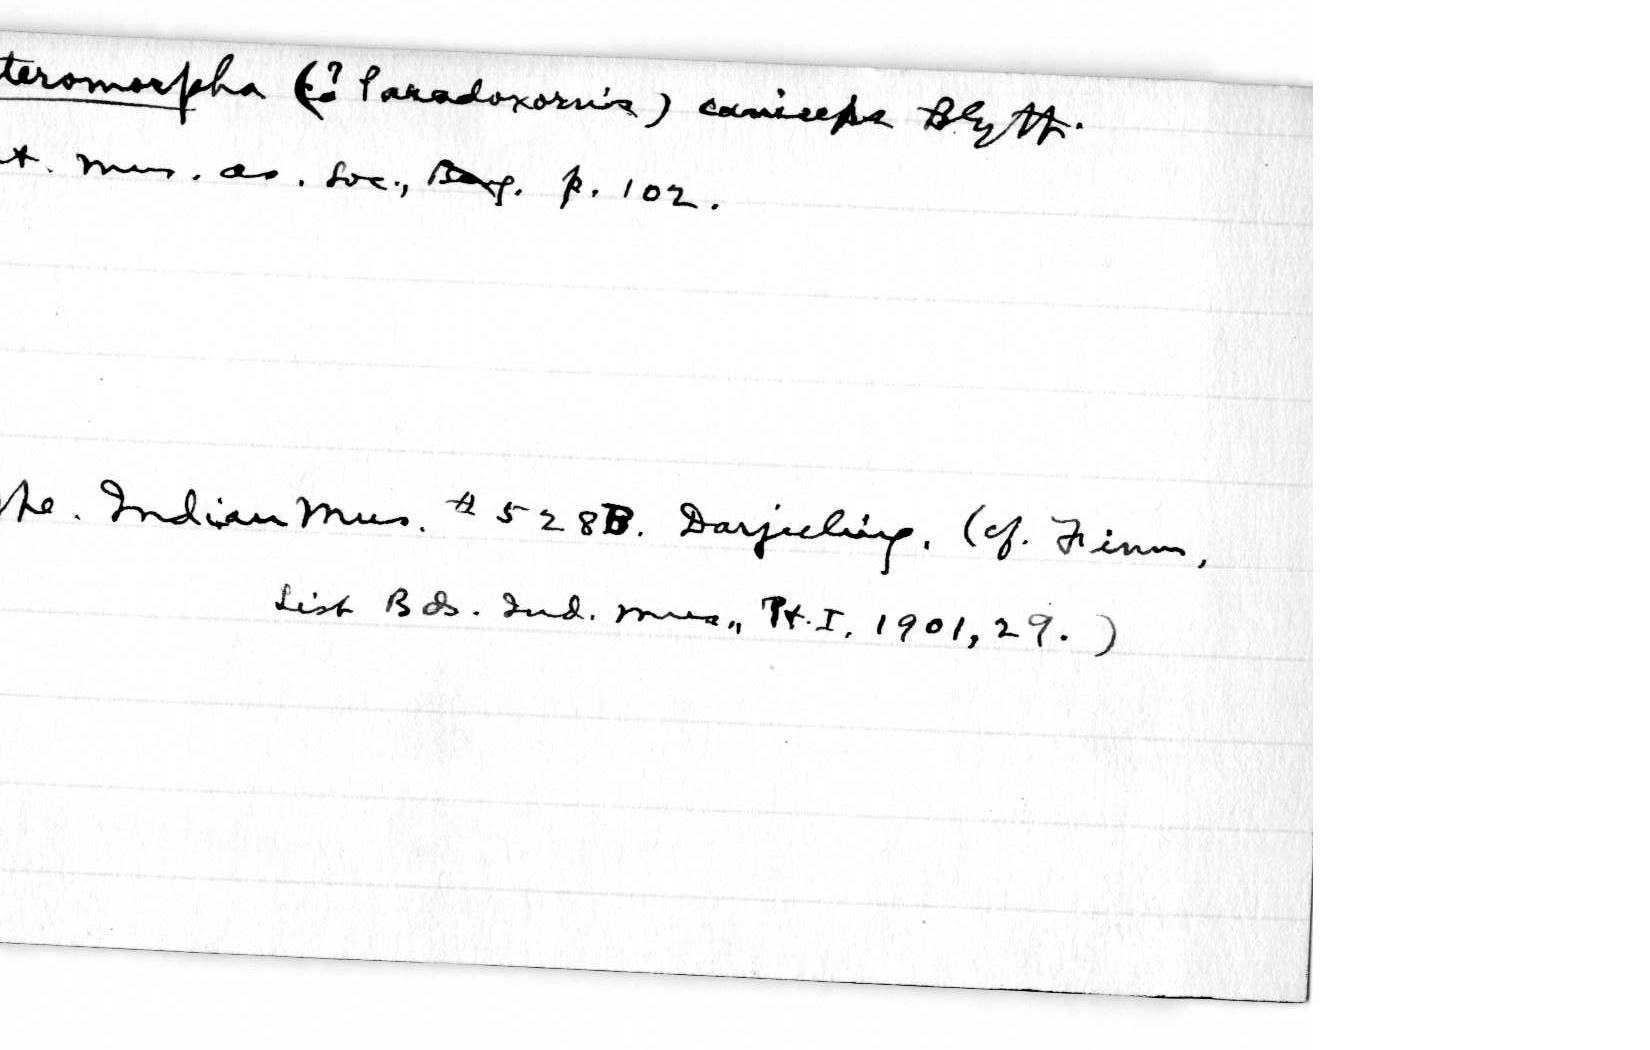 teromorpha (? Paradoxornis) caniceps Blyth.
t. Mus. As. Soc., Beng. p. 102.
pe. Indian Mus. # 528B. Darjeeling. (cf. Finn,
List Bds. Ind. Mus., Pt. I, 1901, 29.)